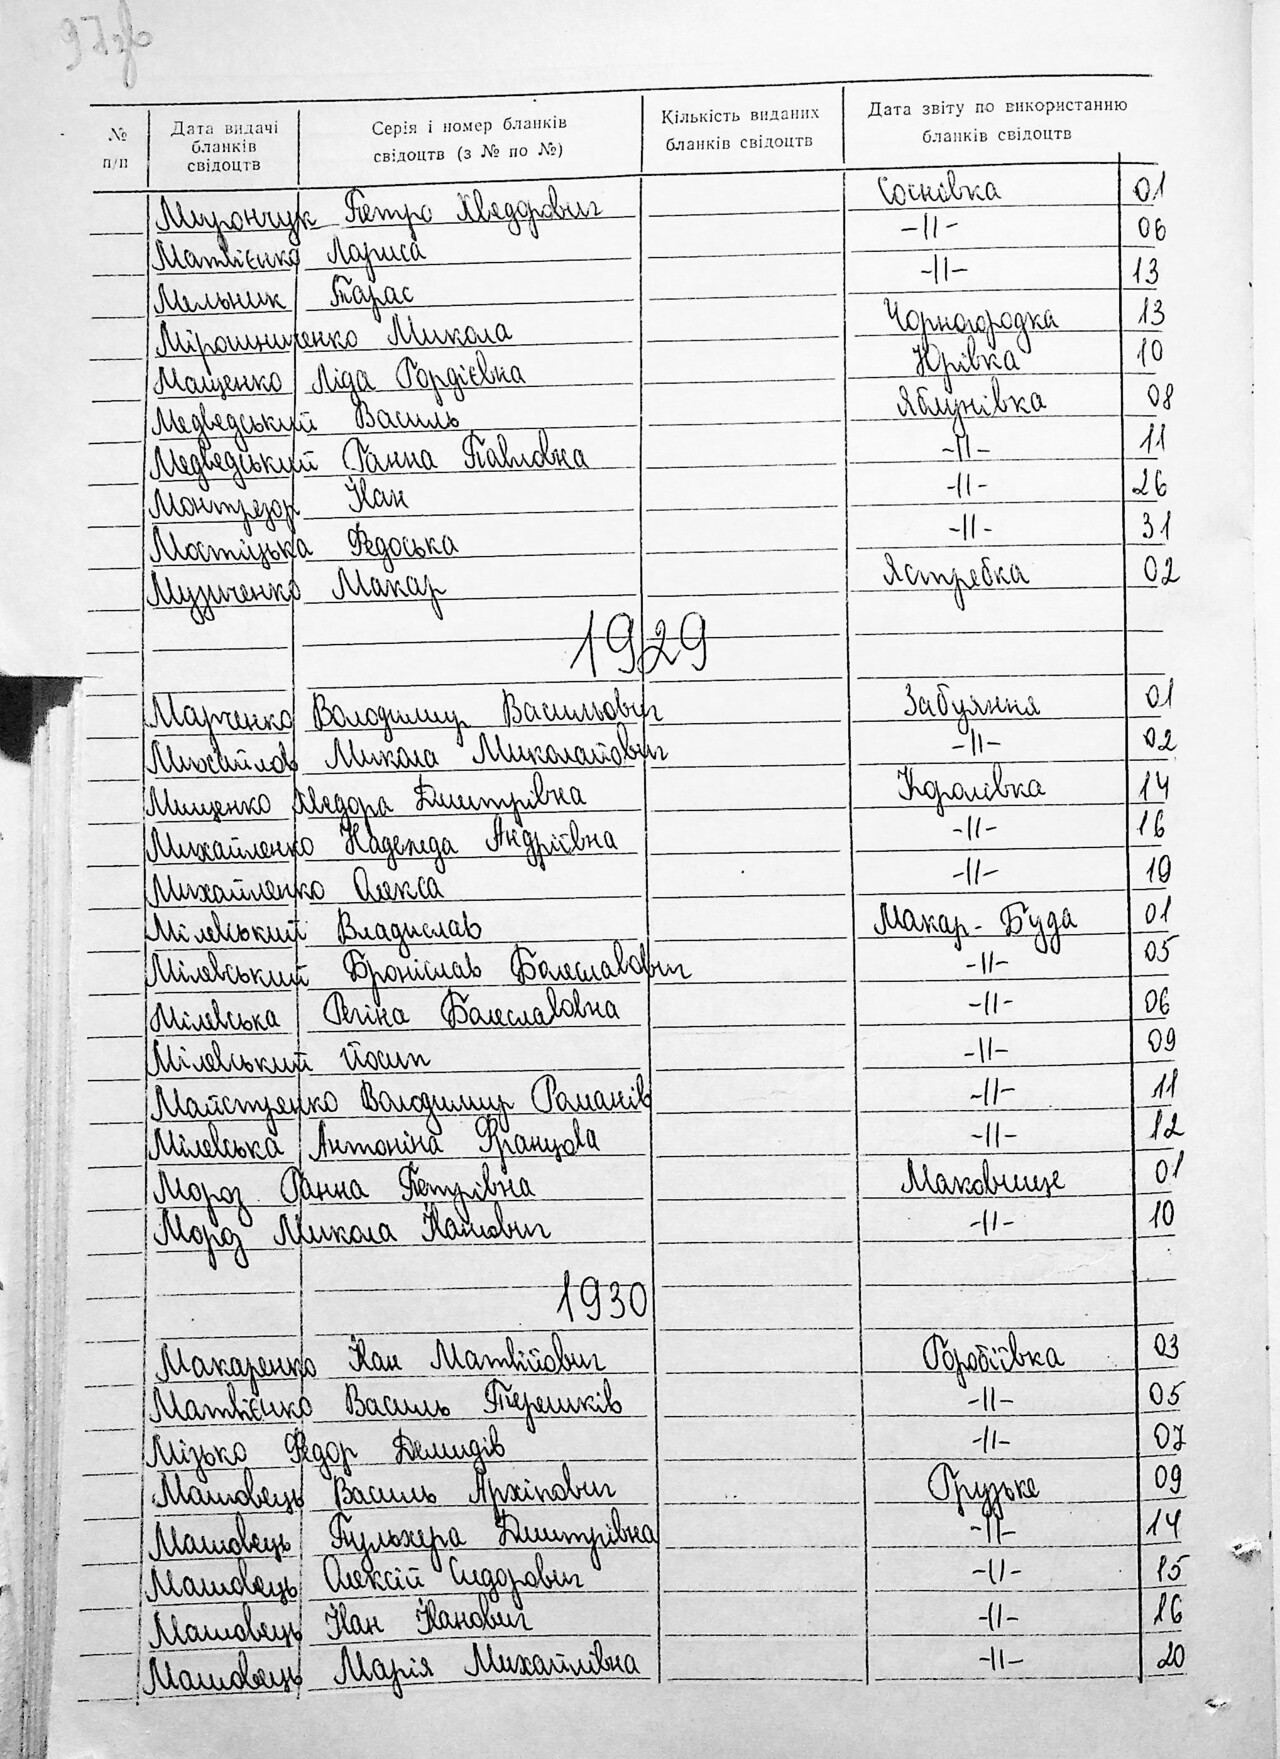 97зв
№ п/п
Дата видачі бланків свідоцтв
Серія і номер бланків свідоцтв (з № по №)
Кількість виданих бланків свідоцтв
Дата звіту по використанню бланків свідоцтв
Мирончук Петро Хведорович Соснівка 01
Матвієнко Лариса -||- 06
Мельник Тарас -||- 13
Мірошниченко Микола Чорногородка 13
Мащенко Ліда Гордієвна Юрівка 10
Медведський Василь Яблунівка 08
Медведський Ганна Павловна -||- 11
Монтрезор Іван -||- 26
Мостіцька Федоська -||- 31
Музиченко Макар Ястребка 02
1929
Марченко Володимир Васильович Забуяння 01
Михайлов Микола Миколайович -||- 02
Мищенко Хведора Дмитрівна Королівка 14
Михайленко Надежда Андріївна -||- 16
Михайленко Олекса -||- 19
Мілевський Владислав Макар-Буда 01
Мілевський Броніслав Болеславович -||- 05
Мілевська Регіна Болеславовна -||- 06
Мілевський Йосип -||- 09
Майстренко Володимир Романів -||- 11
Мілевська Антоніна Францова -||- 12
Мороз Ганна Петрівна Маковище 01
Мороз Микола Іванович -||- 10
1930
Макаренко Іван Матвійович Горобіївка 03
Матвієнко Василь Терешків -||- 05
Мізько Федор Демидів -||- 07
Машовець Василь Архіпович Грузьке 09
Машовець Пульхера Дмитрівна -||- 14
Машовець Олексій Сидорович -||- 15
Машовець Іван Іванович -||- 16
Машовець Марія Михайлівна -||- 20